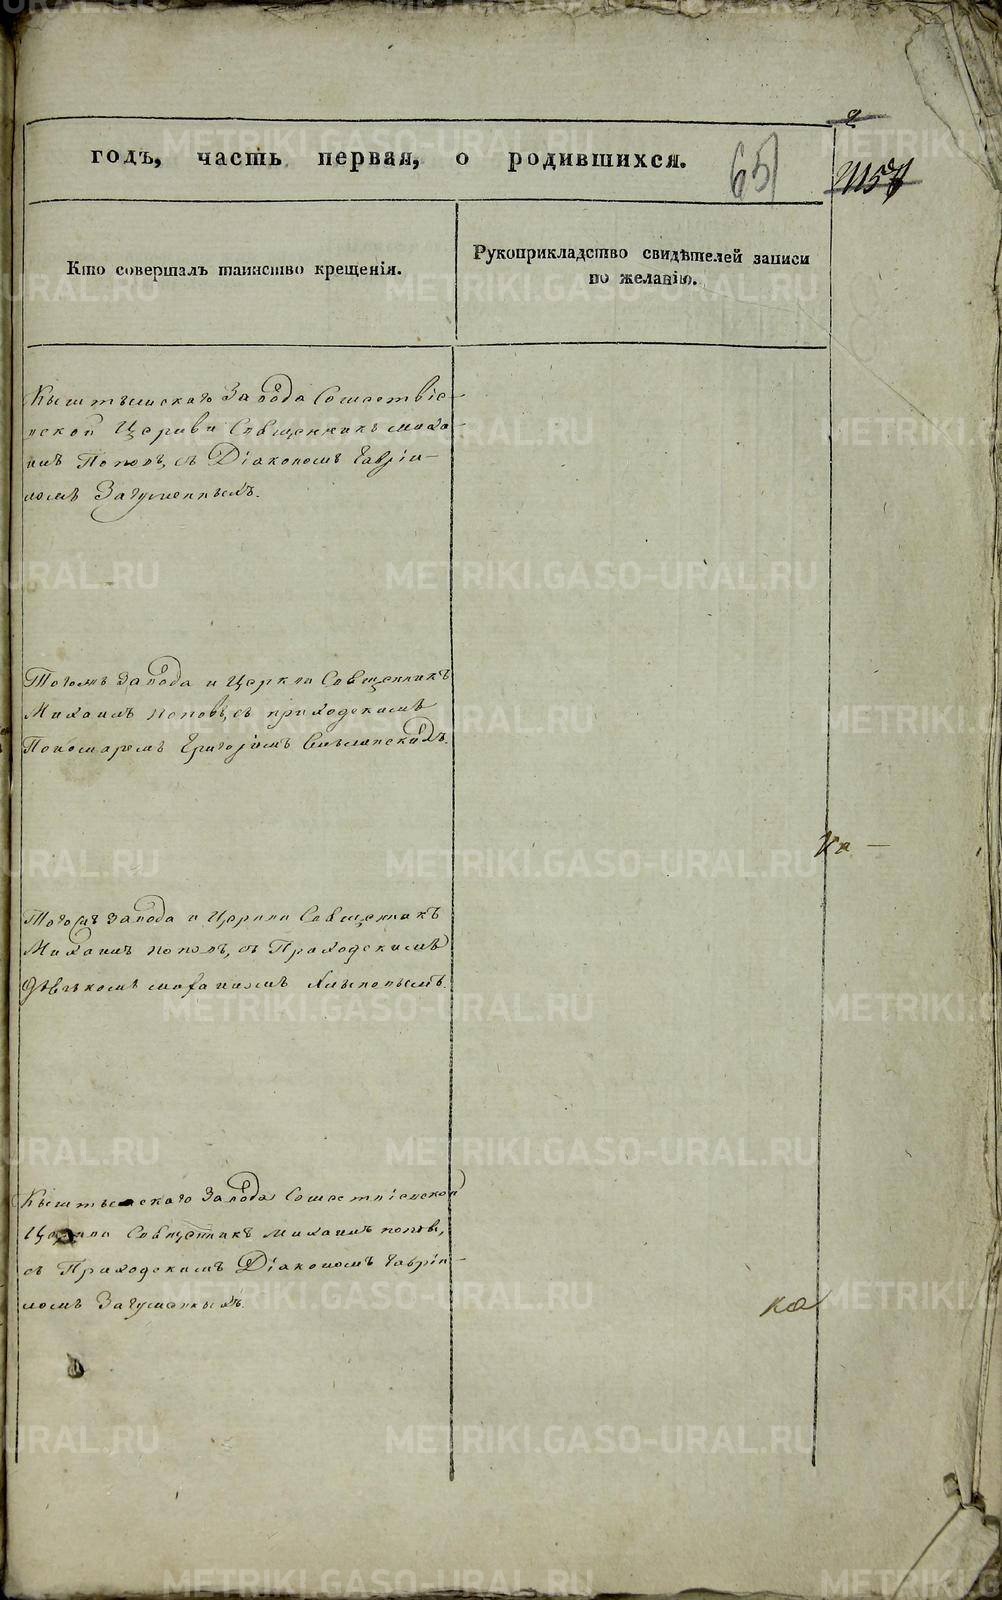 годъ, часть первая, о родившихся.
65
Кто совершалъ таинство крещенія.
Рукоприкладство свидѣтелей записи
по желанію.
Кыштымскаго Завода Сошествіе-
вской Церкви Священникъ Миха-
илъ Поповъ, съ Діакономъ Гаврі-
ломъ Загуменнымъ.
Тогожъ Завода и Церкви Священникъ
Михаилъ Поповъ, съ приходскимъ
Пономаремъ Григоріемъ
Тогожъ Завода и Церкви Священникъ
Михаилъ Поповъ, съ Приходскимъ
Дьячкомъ Михаиломъ
Ка —
Кыштымскаго Завода Сошествіевской
Церкви Священникъ Михаилъ Поповъ,
съ Приходскимъ Діакономъ Гаврі-
ломъ Загуменнымъ.
ка
METRIKI.GASO-URAL.RU